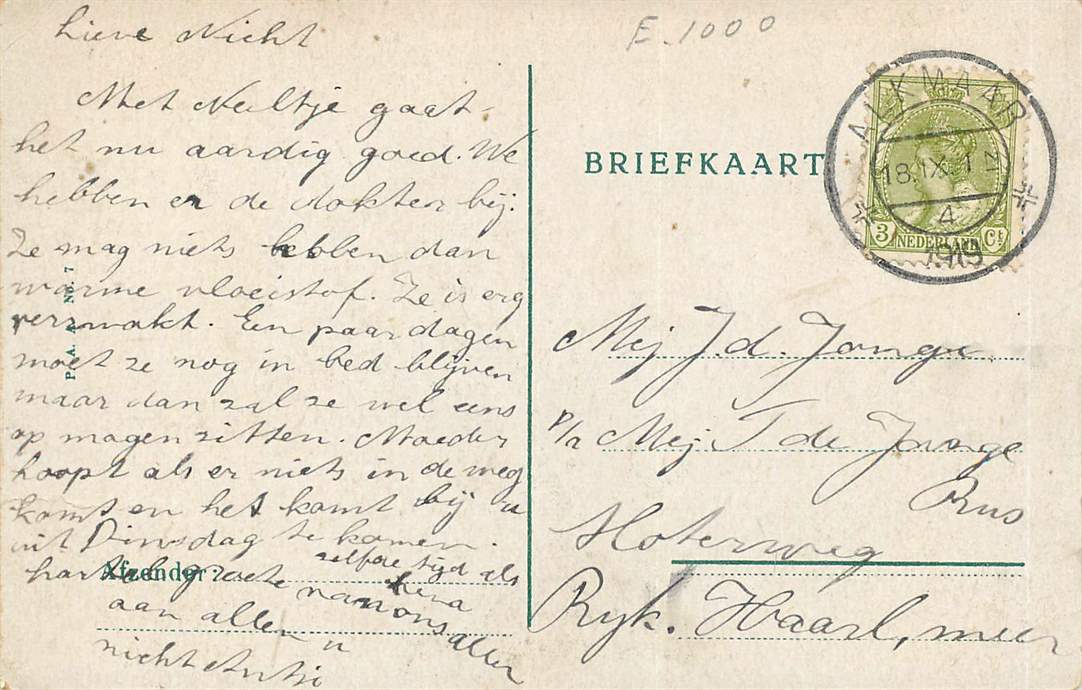 Lieve Nicht
Met Neeltje gaat
het nu aardig goed. We
hebben er de dokter bij.
Ze mag niets hebben dan
warme vloeistof. Ze is erg
verzwakt. Een paar dagen
moet ze nog in bed blijven
maar dan zal ze wel eens
op mogen zitten. Moeder
hoopt als er niets in de weg
komt en het komt bij u
uit Dinsdag te komen.
zelfde tijd als
hartel groete van ons allen
aan allen u
nicht
Afzender:
P. A. No. 7
E.1000
BRIEFKAART
ALKMAAR
18.IX.1
4
1919
3 NEDERLAND Ct
Mej J. d. Jonge
p/a Mej T de Jonge
Rus
Sloterweg
Ryk. Haarl, meer